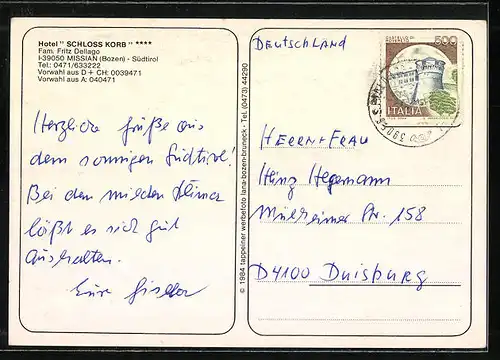 Hotel "SCHLOSS KORB" ****
Fam. Fritz Dellago
I-39050 MISSIAN (Bozen) - Südtirol
Tel.: 0471/633222
Vorwahl aus D + CH: 0039471
Vorwahl aus A: 040471
Herzliche Grüße aus
dem sonnigen Südtirol!
Bei dem milden Klima
läßt es sich gut
aushalten.
Eure
© 1984 tappeiner werbefoto lana-bozen-bruneck - Tel. (0473) 44290
Deutschland
CASTELLO DI
ROVERETO
500
ITALIA
HERRN + FRAU
Heinz Hegemann
Mülheimer Str. 158
D4100 Duisburg